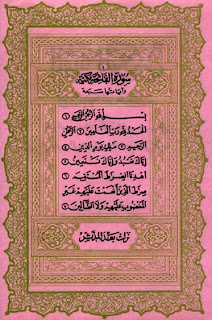 ١
سورة الفاتحة مكية
وآياتها سبعة
بسم الله الرحمن الرحيم
الحمد لله رب العلمين الرحمن
الرحيم ملك يوم الدين
إياك نعبد وإياك نستعين
اهدنا الصرط المستقيم
صرط الذين أنعمت عليهم غير
المغضوب عليهم ولا الضالين
نزلت بعد المدثر